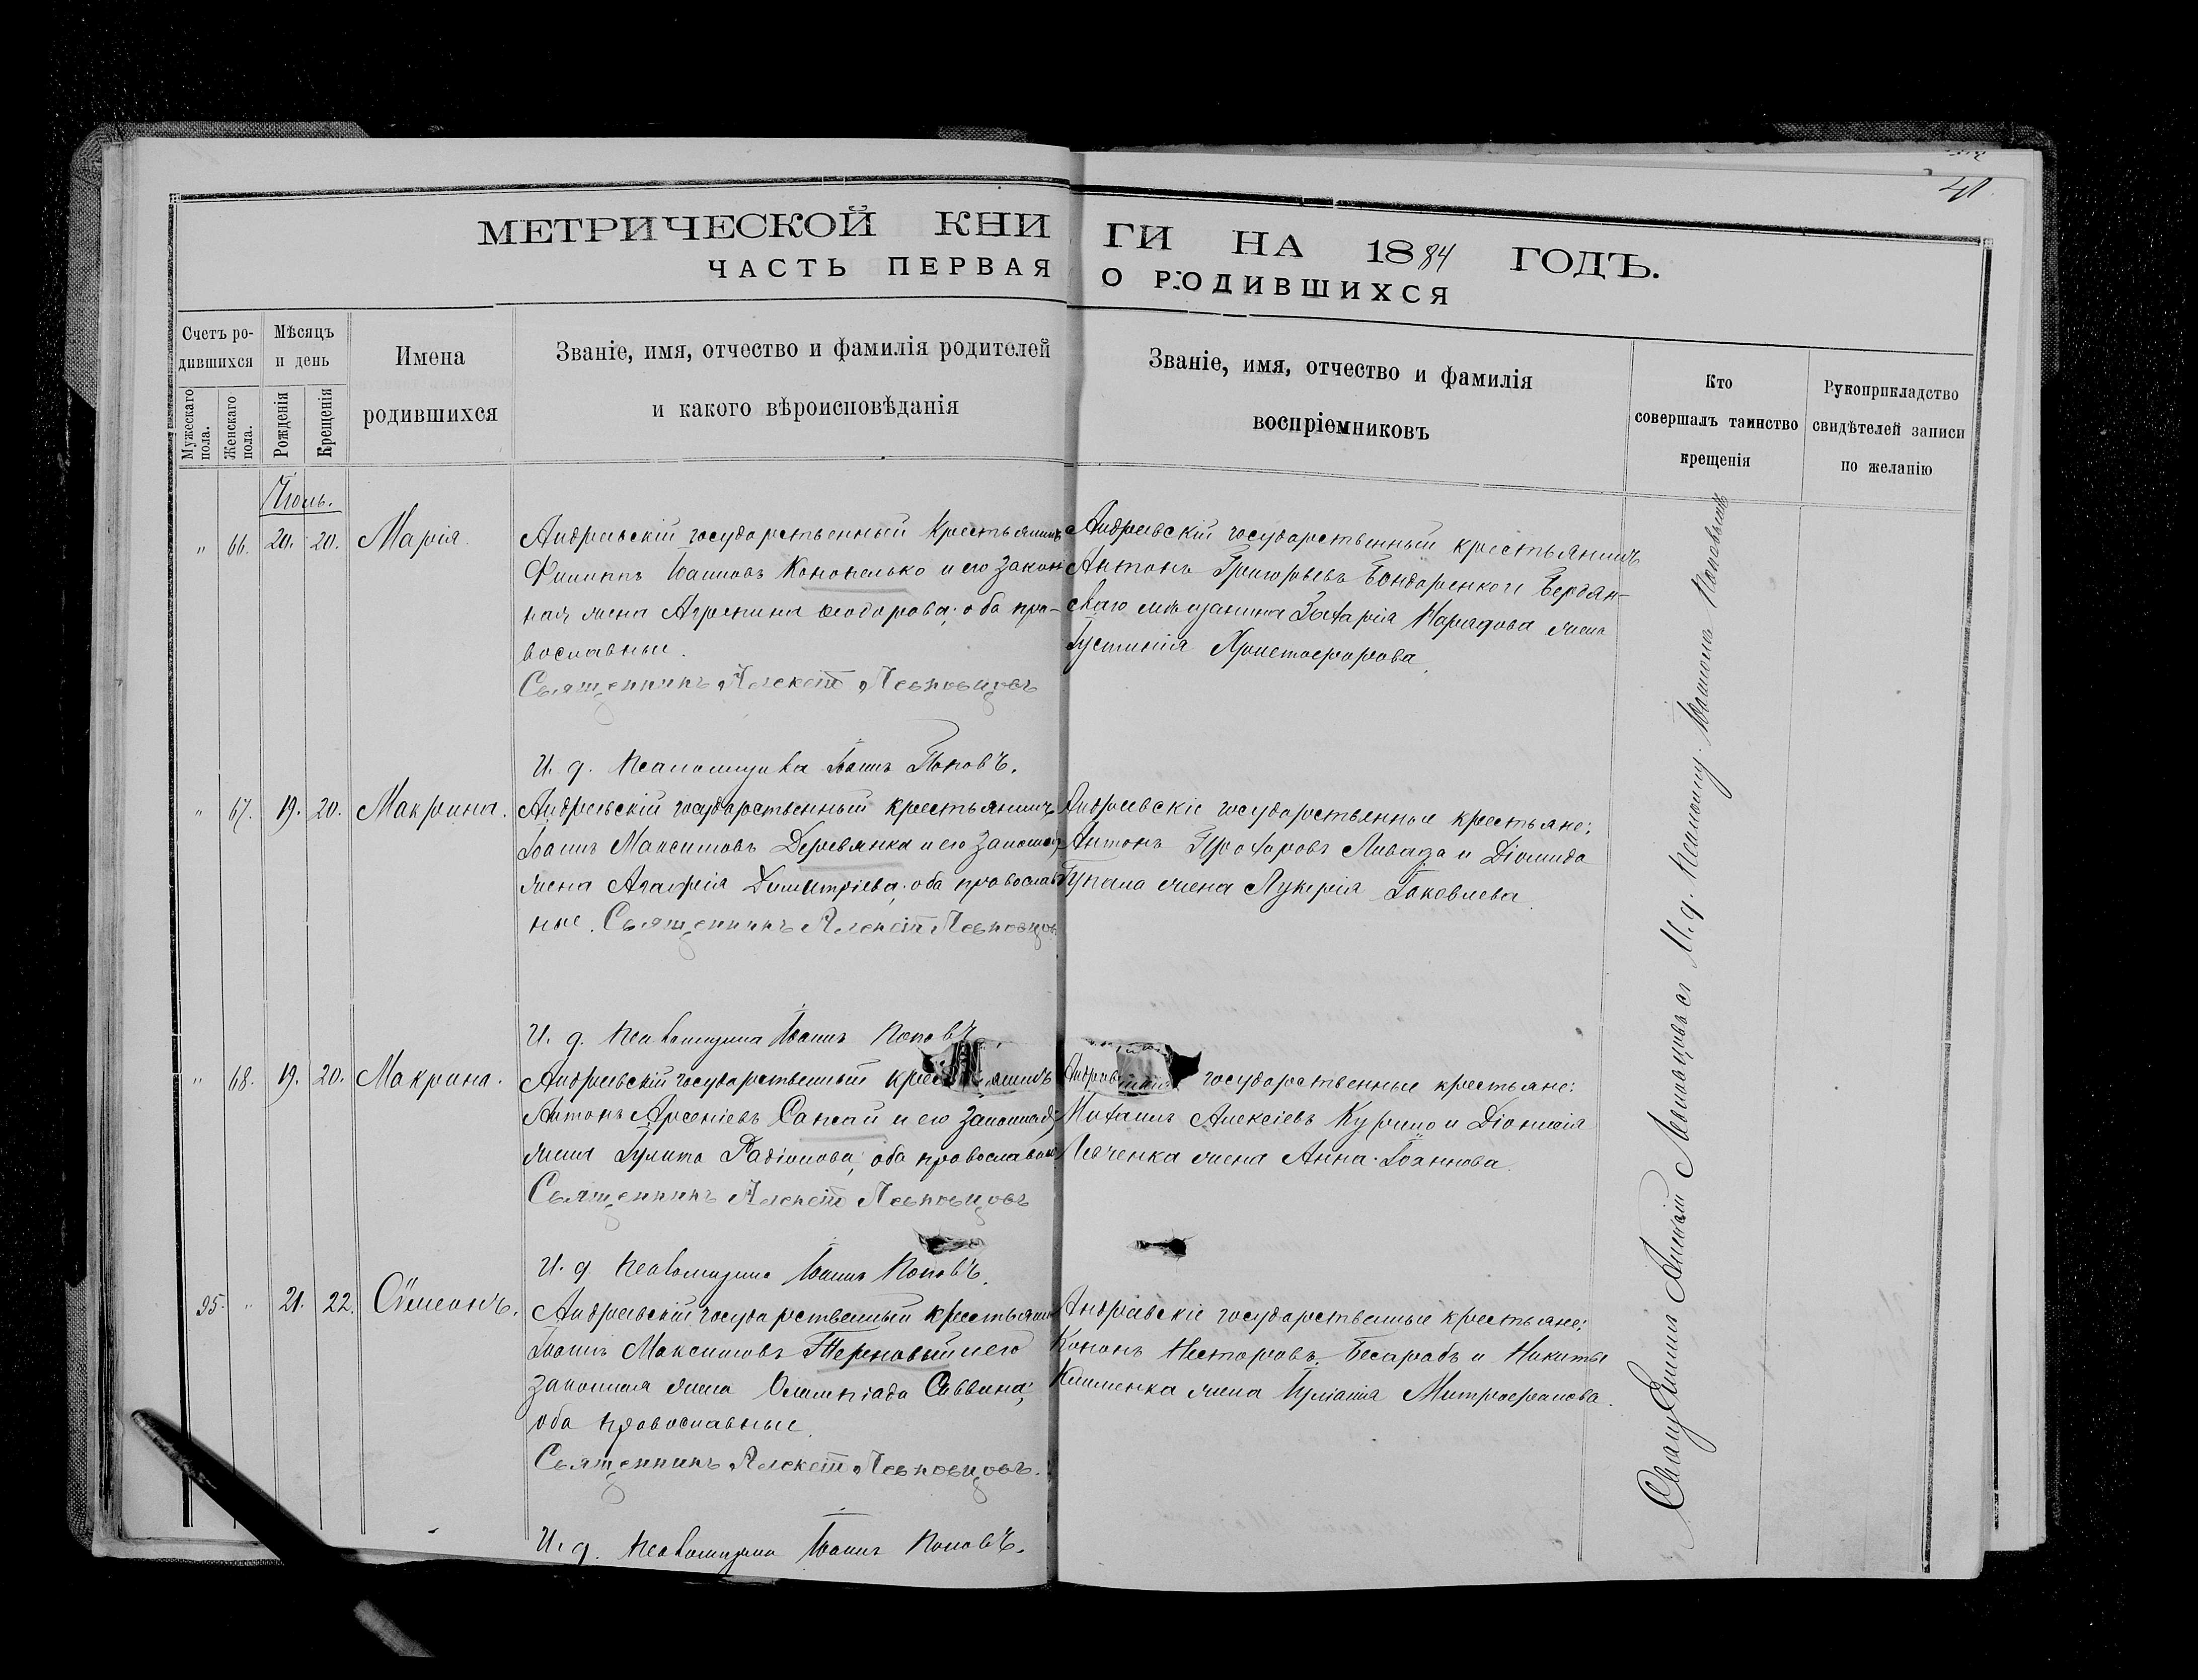 41.
МЕТРИЧЕСКОЙ КНИГИ НА 1884 ГОДЪ.
ЧАСТЬ ПЕРВАЯ О РОДИВШИХСЯ
Счетъ родившихся
Мужескаго пола.
Женскаго пола.
Мѣсяцъ и день
Рожденія
Крещенія
Имена родившихся
Званіе, имя, отчество и фамилія родителей
и какого вѣроисповѣданія
Званіе, имя, отчество и фамилія
воспріемниковъ
Кто
совершалъ таинство
крещенія
Рукоприкладство
свидѣтелей записи
по желанію
Іюль.
" 66. 20. 20. Марія.
Андреевскій государственный крестьянинъ
Филиппъ Іоанновъ Конопелько и его закон
ная жена Агрепина Ѳеодорова; оба пра-
вославные.
Священникъ Алексій Левковцовъ
И. д. псаломщика Іоаннъ Поповъ.
Андреевскій государственный крестьянинъ
Антонъ Григорьевъ Бондаренко и Бердян-
скаго мѣщанина Захарія жена
Іустинія Христофорова.
" 67. 19. 20. Макрина.
Андреевскій государственный крестьянинъ
Іоаннъ Максимовъ Деревянка и его законная
жена Агафія Димитріева; оба православ
ные. Священникъ Алексій Левковцовъ
И. д. псаломщика Іоаннъ Поповъ
Андреевскіе государственные крестьяне:
Антонъ Прохоровъ Ливада и Діомида
жена Лукерія Іаковлева.
" 68. 19. 20. Макрина.
Андреевскій государственный крестьянинъ
Антонъ Арсеніевъ и его законная
жена Іулита Радіонова; оба православные
Священникъ Алексій Левковцовъ
И. д. псаломщика Іоаннъ Поповъ.
Андреевскіе государственные крестьяне:
Михаилъ Алексіевъ и Діонисія
Левченка жена Анна Іоаннова.
95. " 21. 22. Сѵмеонъ.
Андреевскій государственный крестьянинъ
Іоаннъ Максимовъ Терновый и его
законная жена Олимпіада Саввина;
оба православные.
Священникъ Алексій Левковцовъ.
И. д. псаломщика Іоаннъ Поповъ.
Андреевскіе государственные крестьяне:
Кононъ Несторовъ Бесарабъ и Никиты
Клименка жена Іуліанія Митрофанова.
Священникъ Алексій Левковцовъ съ И. д. псаломщ. Іоанномъ Поповымъ